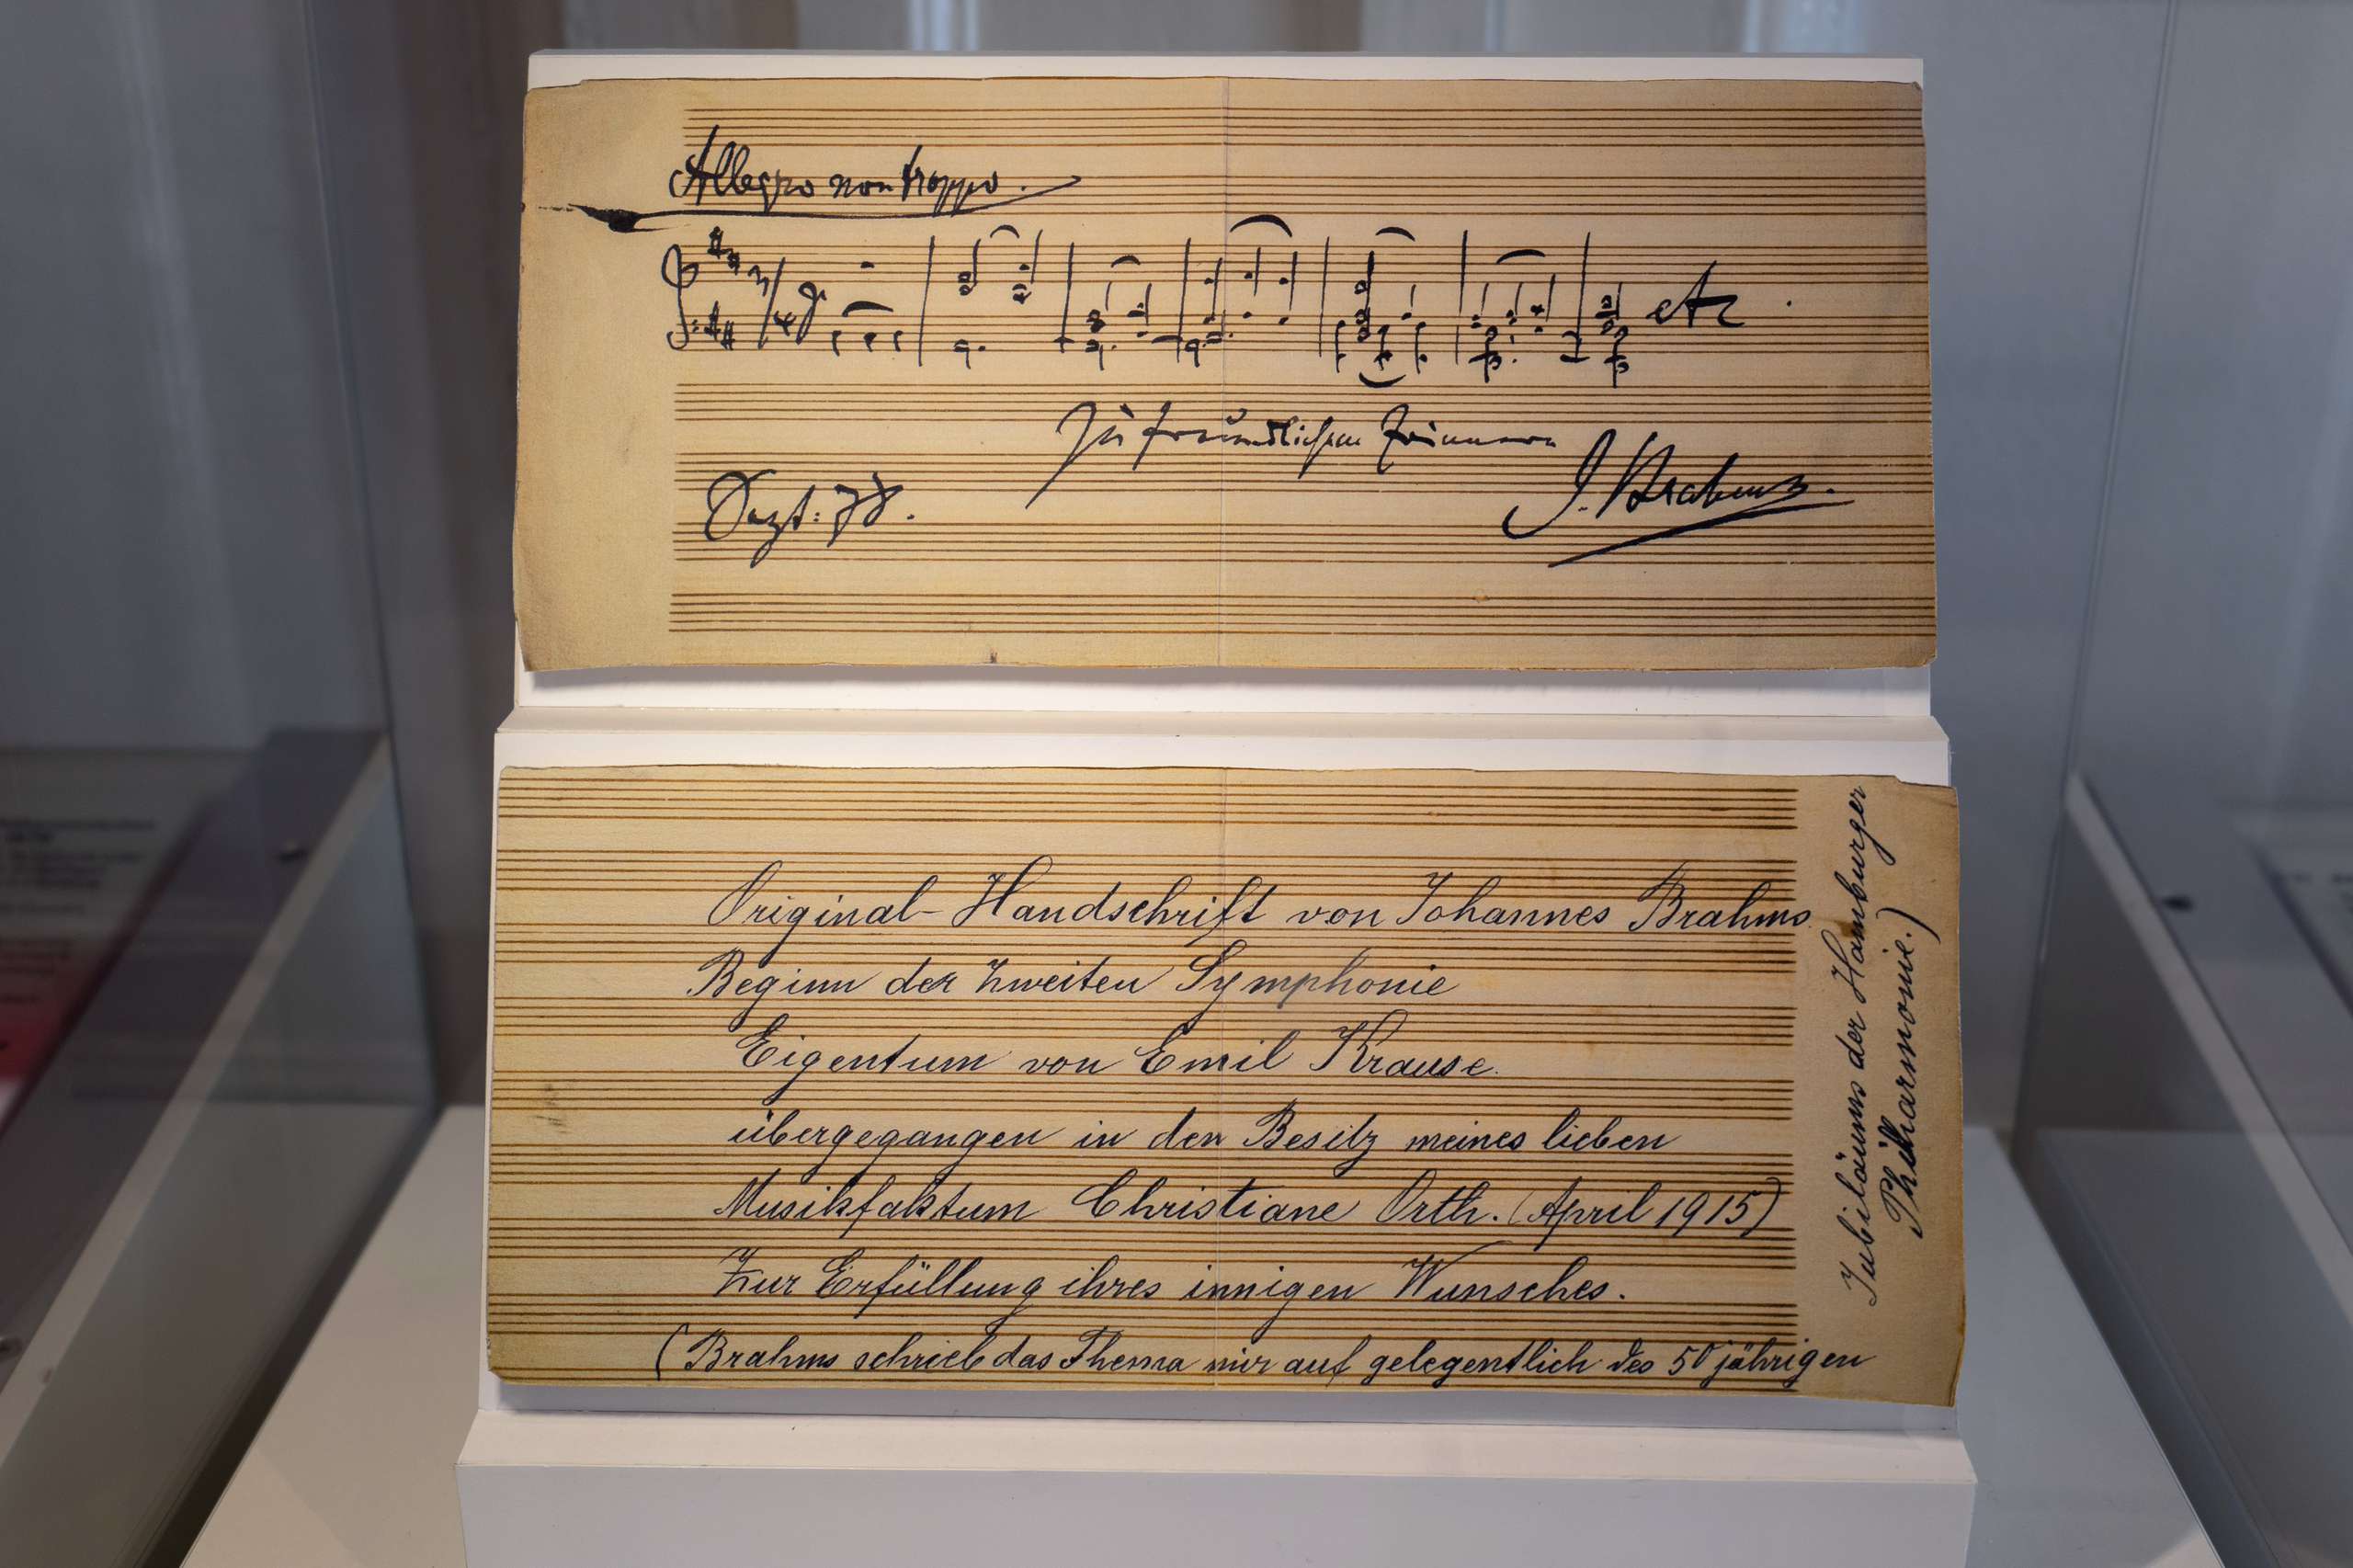 Allegro non troppo.
etc.
Zu freundlichem Erinnern
Sept: 78.
J. Brahms.
Original-Handschrift von Johannes Brahms.
Beginn der zweiten Symphonie
Eigentum von Emil Krause.
übergegangen in den Besitz meines lieben
Musikfaktum Christiane Orth. (April 1915)
Zur Erfüllung ihres innigen Wunsches.
(Brahms schrieb das Thema mir auf gelegentlich des 50 jährigen
Jubiläums der Hamburger
Philharmonie.)